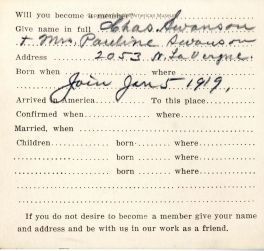 Will you become a member
Give name in full Chas Swanson
+ Mrs. Pauline Swanson
Address 2053 N. La Vergne
Born when where
Join Jan 5 1919,
Arrived in America To this place
Confirmed when where
Married, when where
Children born where
born where
born where
born where
If you do not desire to become a member give your name
and address and be with us in our work as a friend.